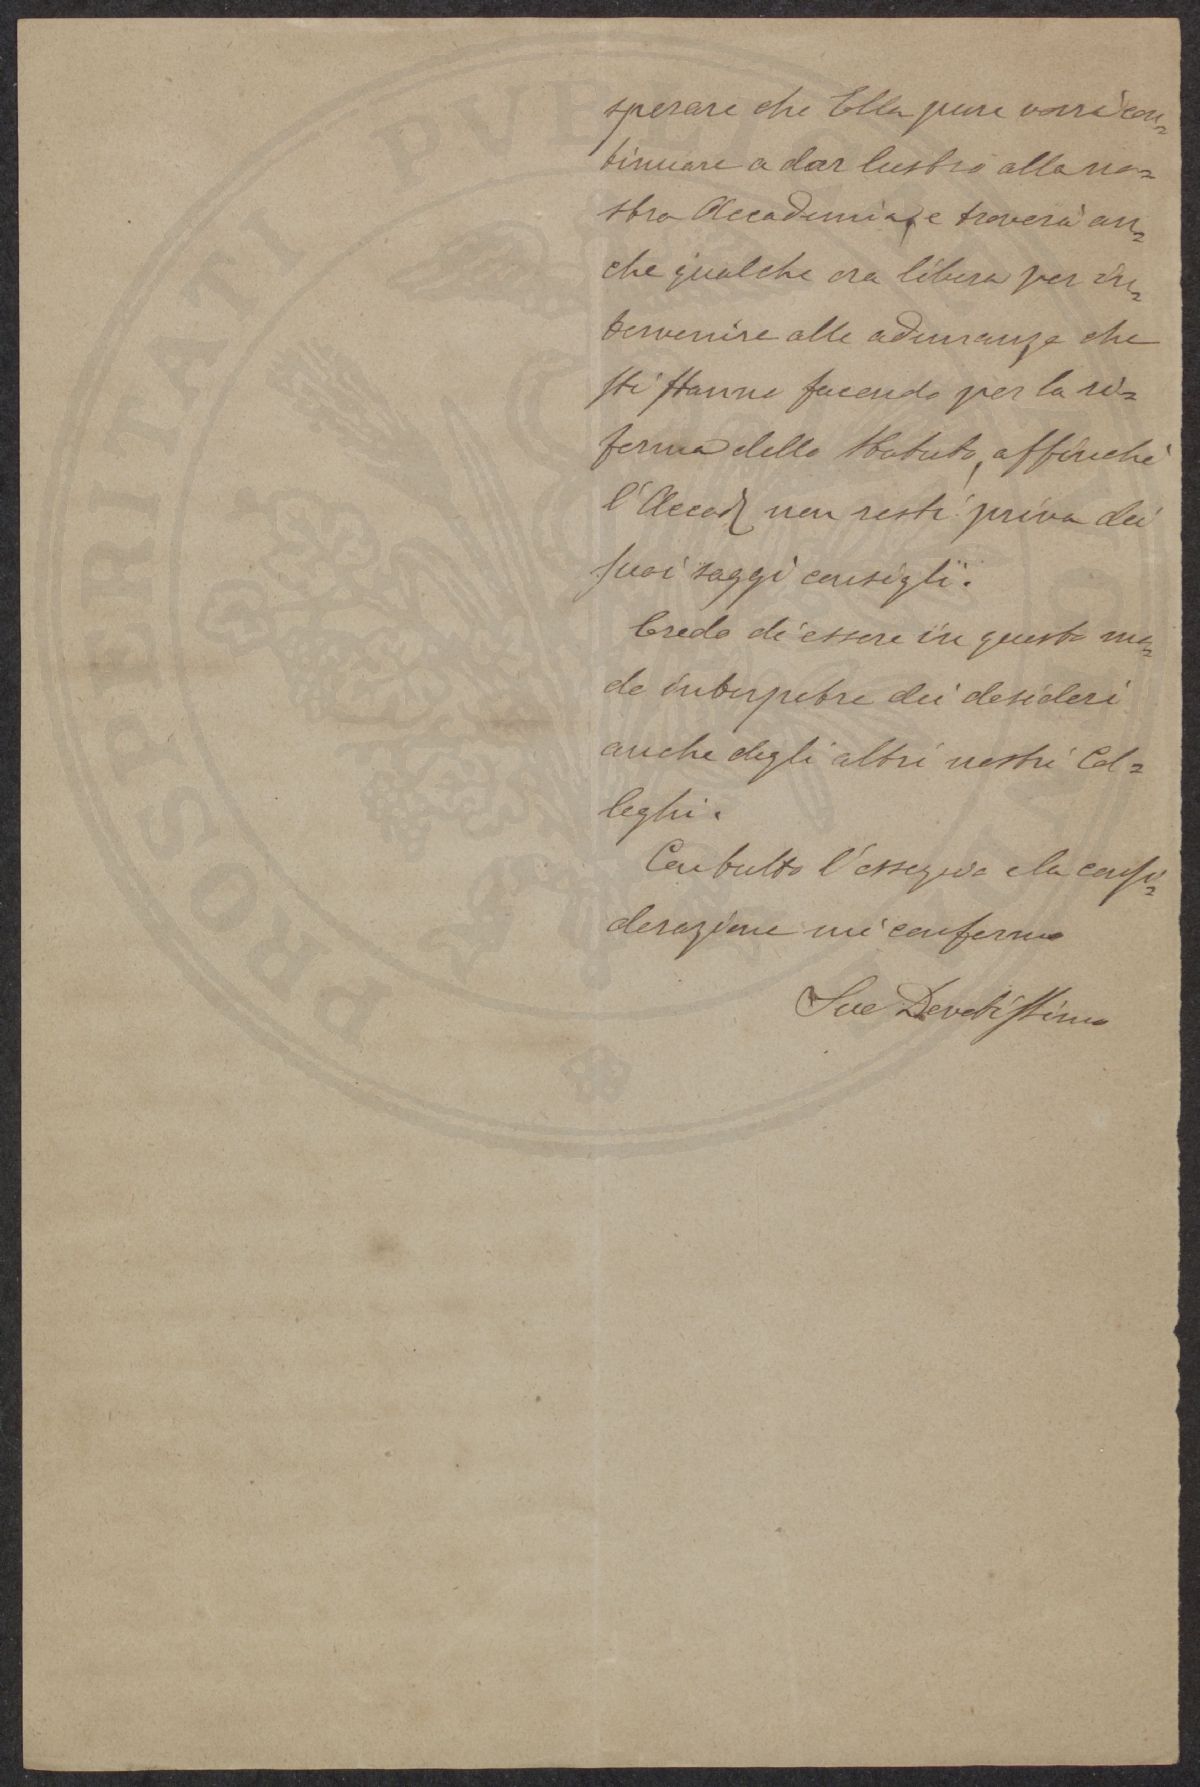 sperare che Ella pure vorrà con=
tinuare a dar lustro alla no=
stra Accademia, e troverà an=
che qualche ora libera per in=
tervenire alle adunanze che
si stanno facendo per la ri=
forma dello Statuto, affinché
l'Accad. non resti priva dei
suoi saggi consigli.
Credo di essere in questo mo=
do interpetre dei desideri
anche degli altri nostri Col=
leghi.
Con tutto l'ossequio e la consi=
derazione mi confermo
Suo Devotissimo
PROSPERITATI PVBLICAE